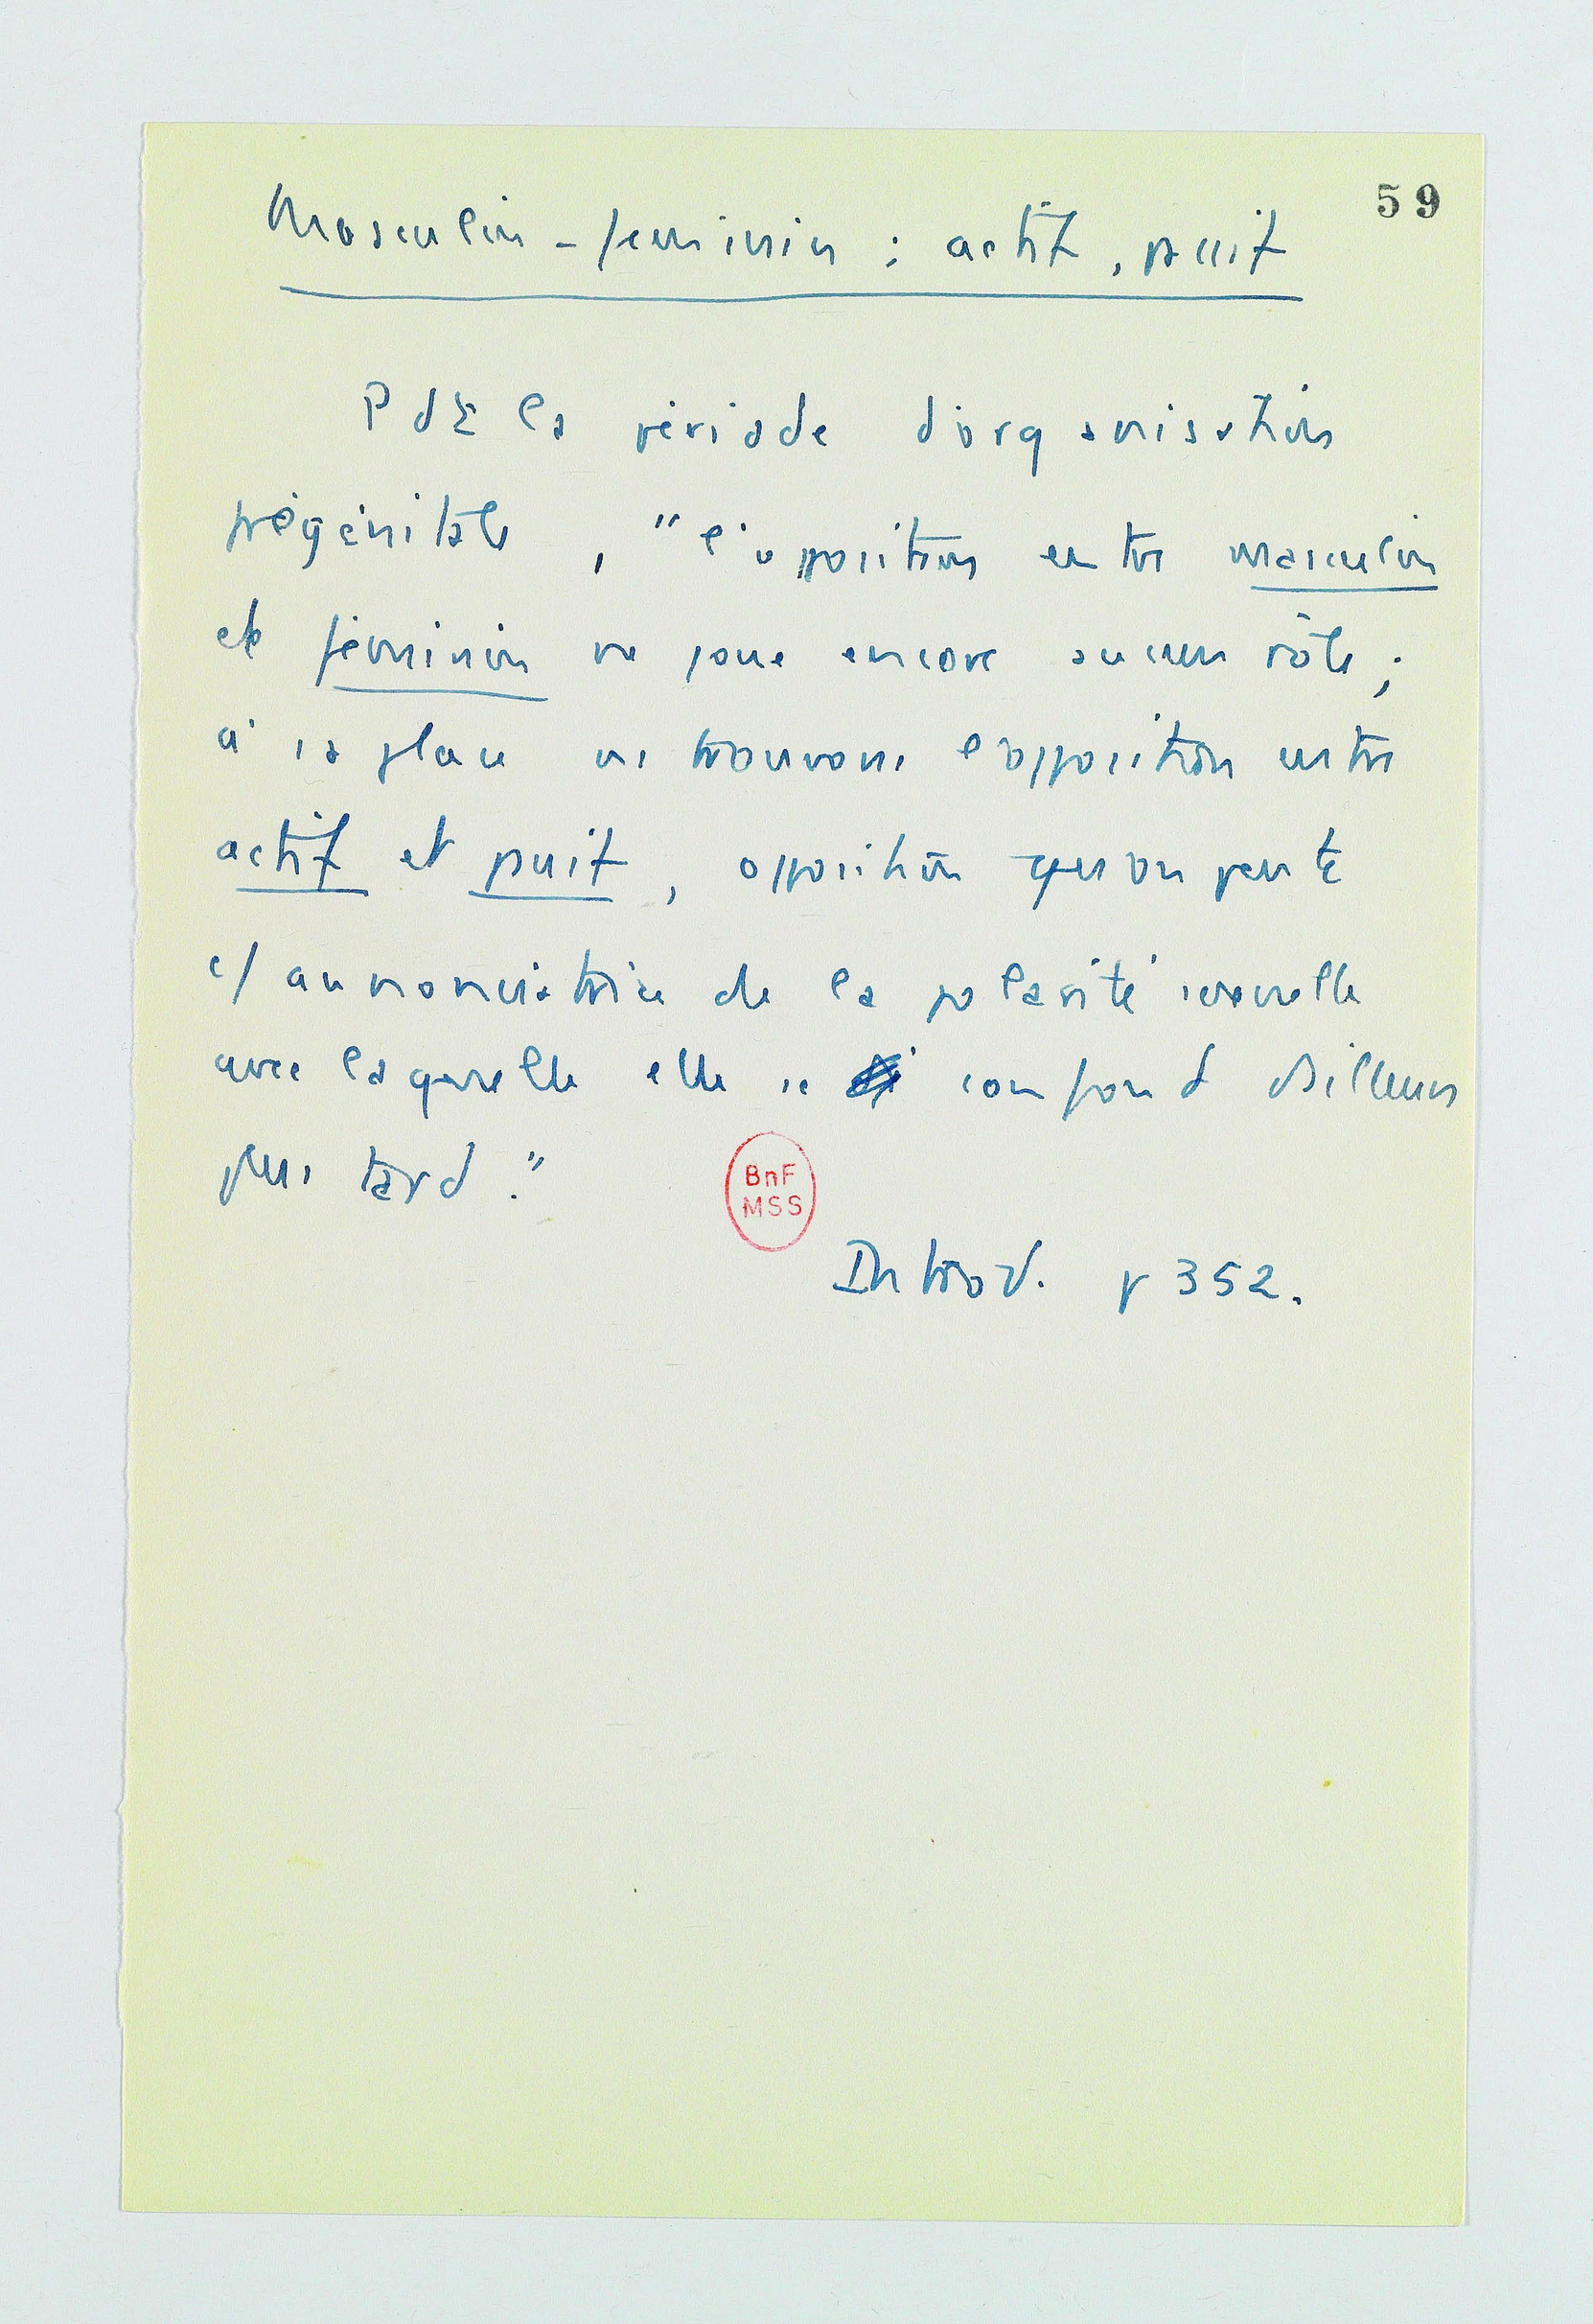 59
Masculin - feminin : actif, passif
Pdt la période d'organisation
prégénitale, "l'opposition entre masculin
et féminin ne joue encore aucun rôle ;
à sa place ns trouvons l'opposition entre
actif et passif, opposition qu'on peut
c/ annonciatrice de la polarité sexuelle
avec laquelle elle se confond d'ailleurs
plus tard."
BnF
MSS
Introd. p 352.